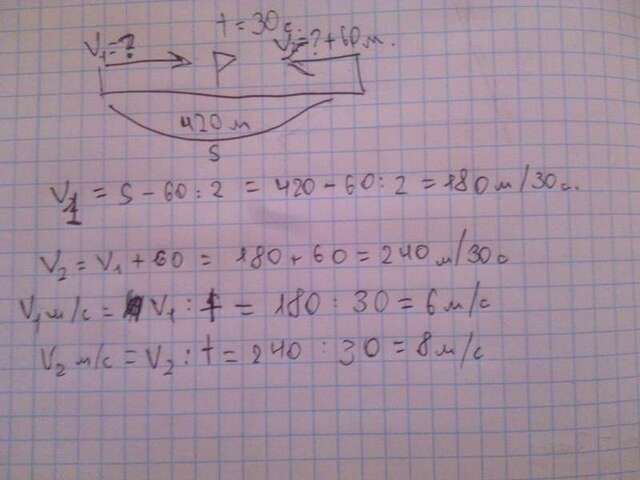 t = 30 с.
V₁ = ?
V₂ = ? + 60 м.
420 м
S
V₁ = S - 60 : 2 = 420 - 60 : 2 = 180 м/30 с.
V₂ = V₁ + 60 = 180 + 60 = 240 м/30 с
V₁ м/с = V₁ : t = 180 : 30 = 6 м/с
V₂ м/с = V₂ : t = 240 : 30 = 8 м/с